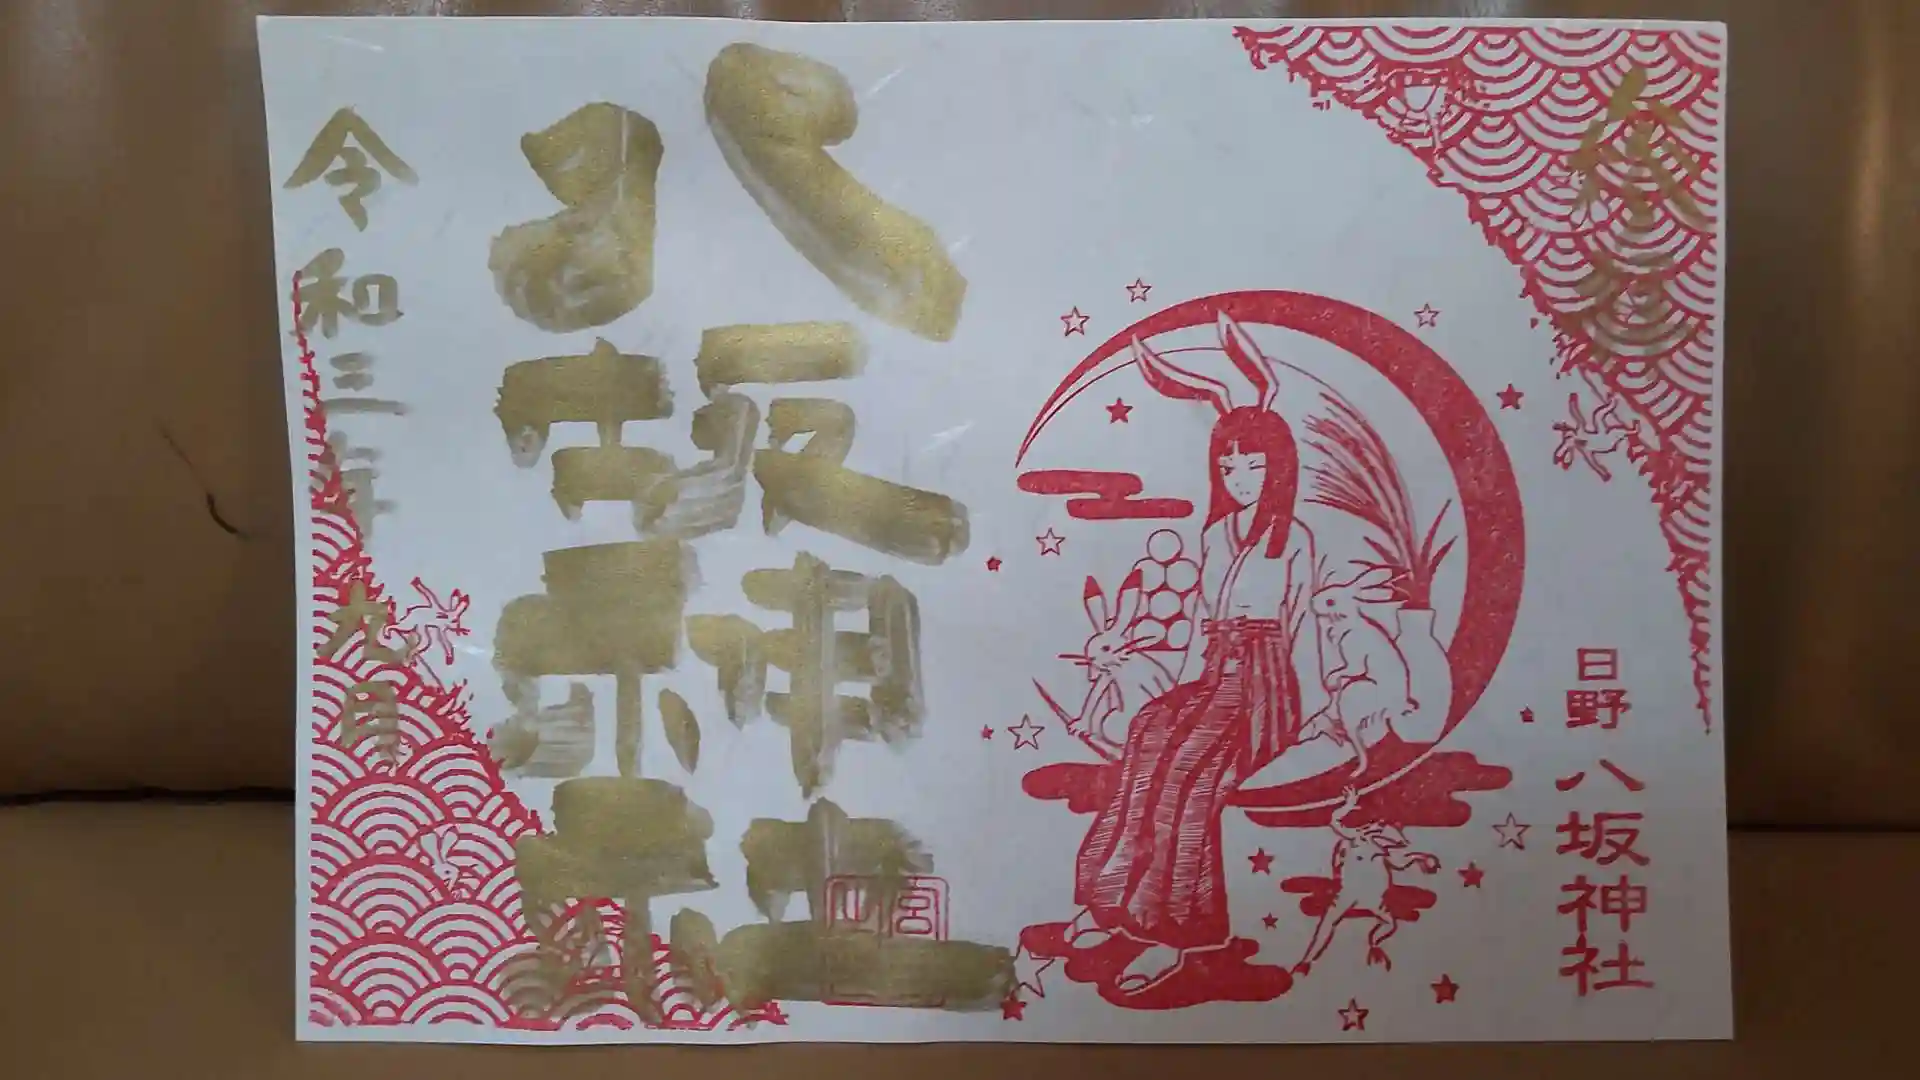 日野八坂神社
八坂神社
令和三年九月